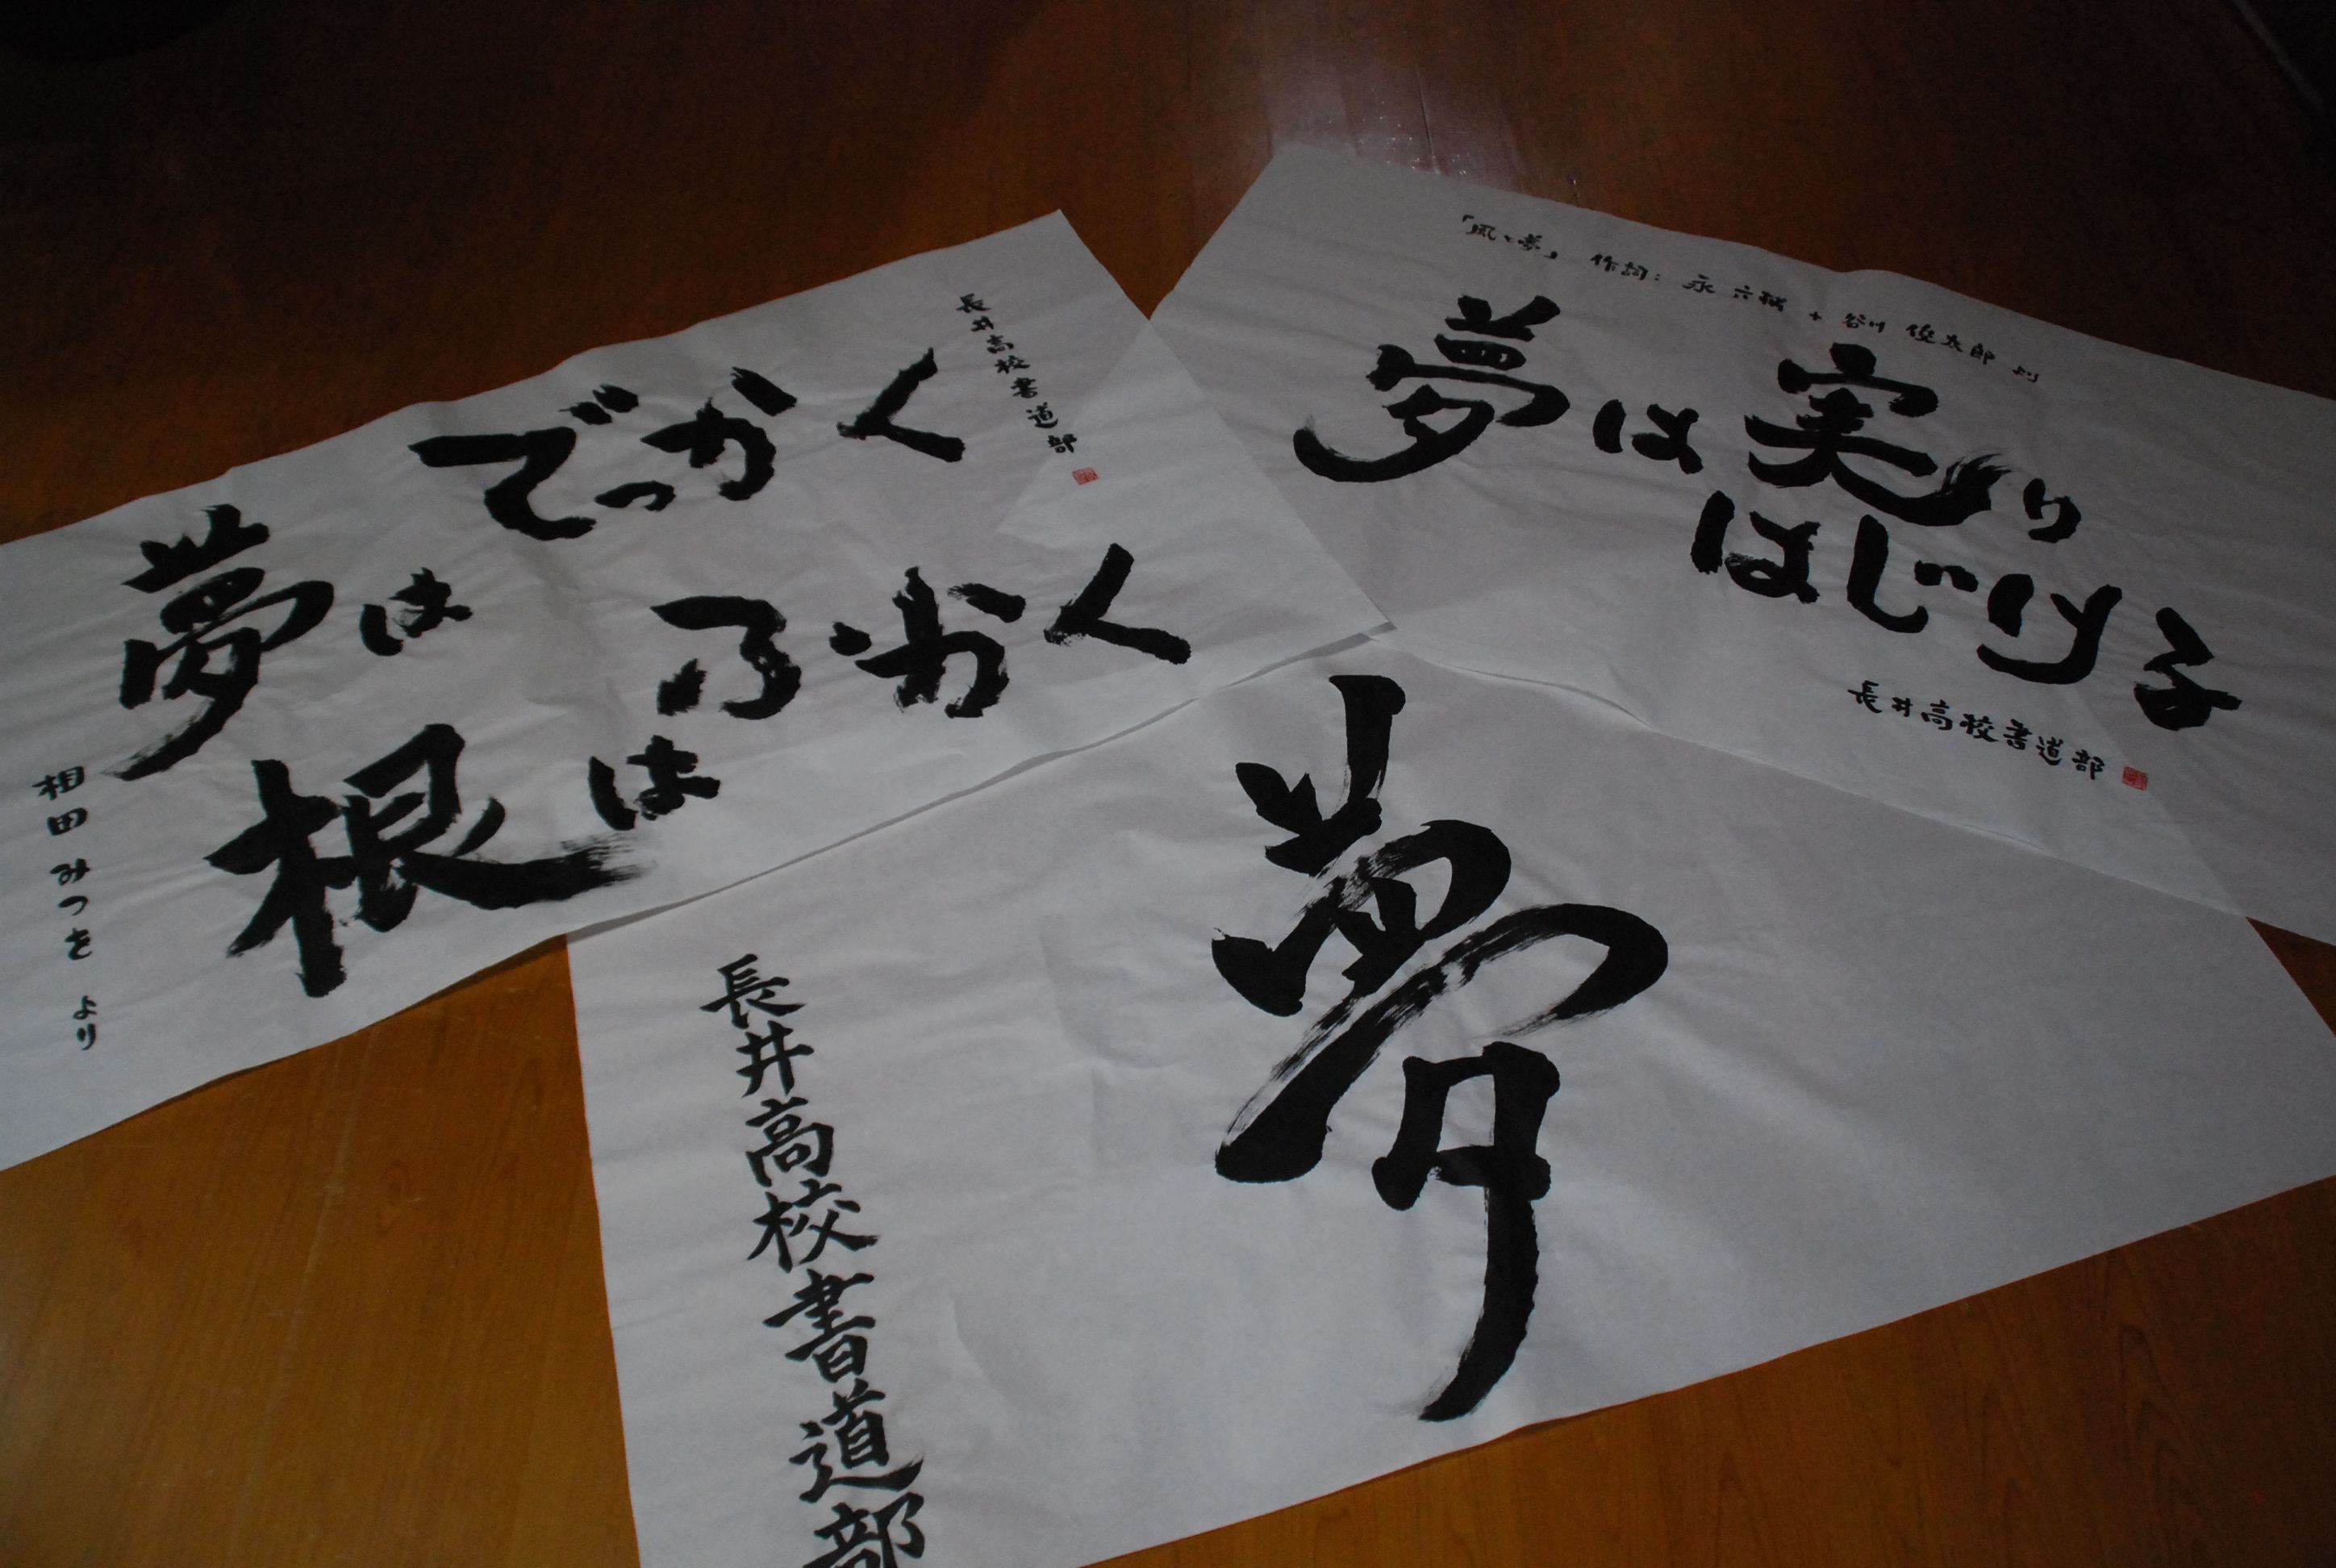 夢は
でっかく
根は
ふかく
相田みつを より
長井高校書道部
「風と夢」 作詞: 永 六輔 + 谷川 俊太郎 より
夢は実り
はじける
長井高校書道部
夢
長井高校書道部